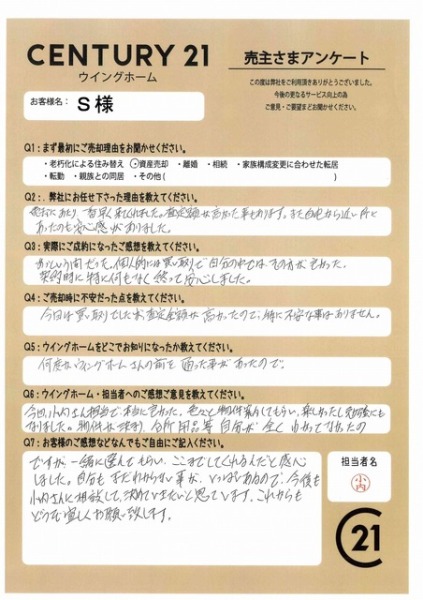 CENTURY 21
ウイングホーム
売主さまアンケート
この度は弊社をご利用頂きありがとうございました。
今後の更なるサービス向上の為
ご意見・ご要望まどお聞かせください。
お客様名: S様
Q1:まず最初にご売却理由をお聞かせください。
・老朽化による住み替え ・資産売却 ・離婚 ・相続 ・家族構成変更に合わせた転居
・転勤 ・親族との同居 ・その他( )
Q2:.弊社にお任せ下さった理由を教えてください。
査定額が高かった事もあります。また自宅から近い所に
あったのも安心感がありました。
Q3:実際にご成約になったご感想を教えてください。
あっという間だった。個人的には買い取りで
契約時に特に何もなく終って安心しました。
Q4:ご売却時に不安だった点を教えてください。
今回は買い取りでしたし査定金額が高かったので、特に不安な事はありません。
Q5:ウイングホームをどこでお知りになったか教えてください。
何度かウイングホームさんの前を通った事があったので。
Q6:ウイングホーム・担当者へのご感想ご意見を教えてください。
今回、小内さん担当で本当に良かった。色々と物件案内してもらい、楽しかったし
なりました。自分が全く分かってなかったの
Q7:お客様のご感想などなんでもご自由にご記入ください。
ですが、一緒に選んでもらい、ここまでしてくれるんだと感心
しました。自分もまだわからない事が、いっぱいあるので、今後も
小内さんに相談して決めていきたいと思っています。これからも
どうぞ宜しくお願い致します。
担当者名
小内
21